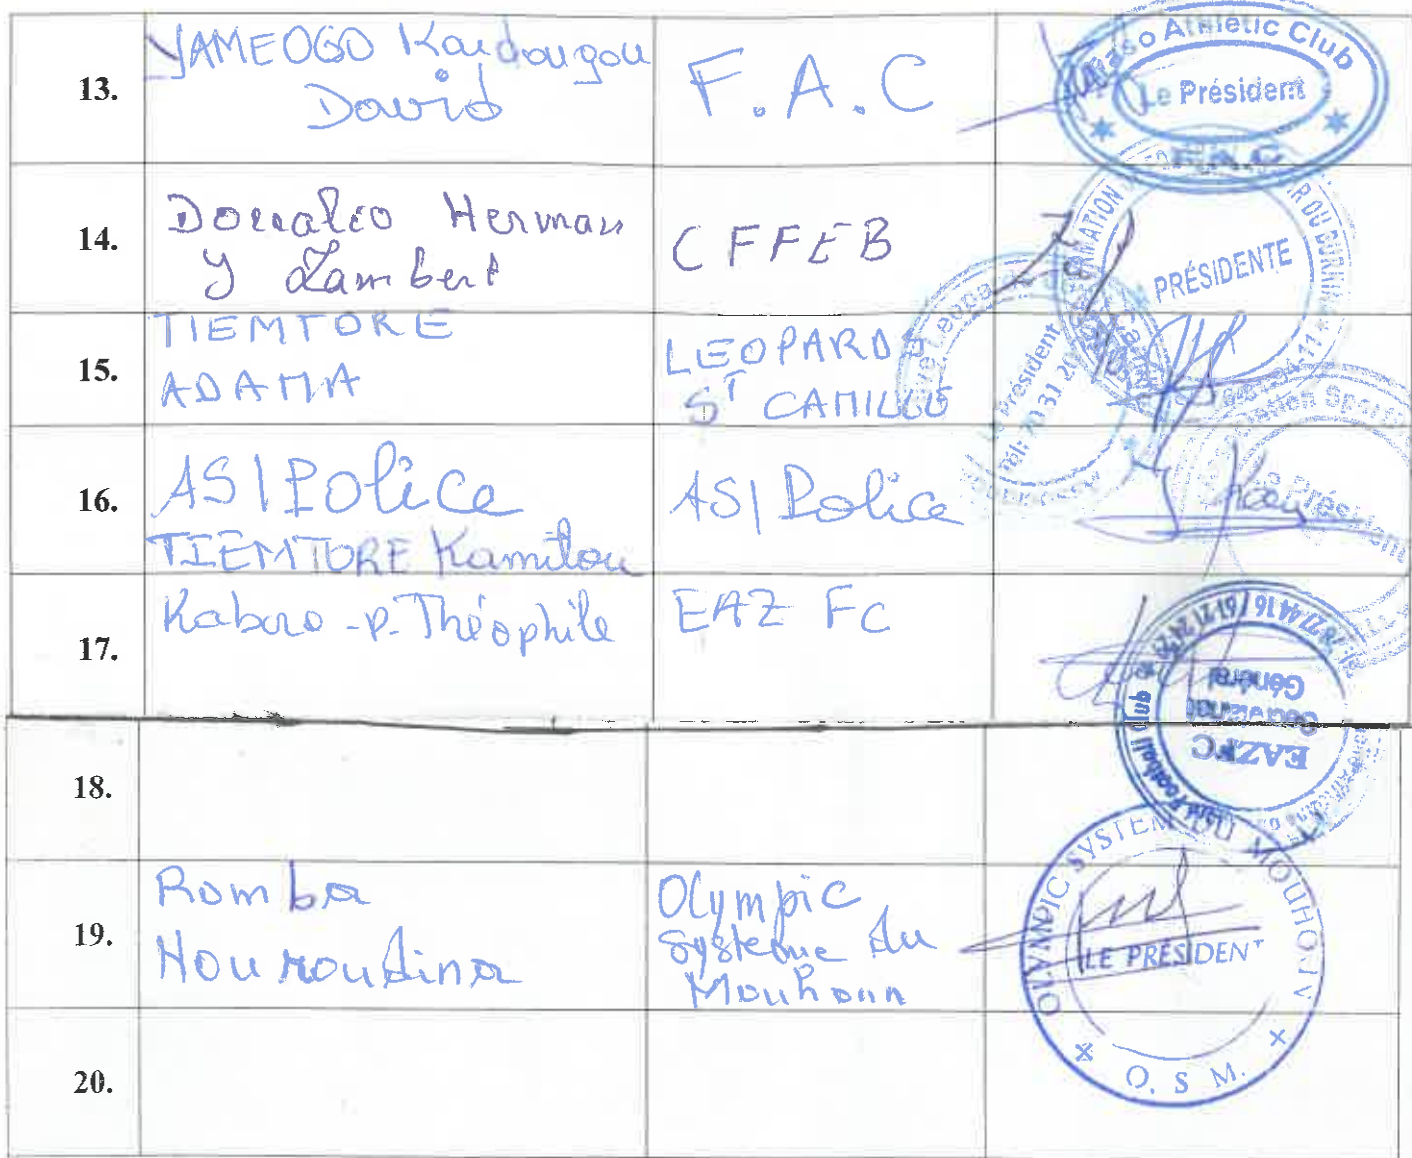 13.
YAMEOGO Kardougou
David
F.A.C
Faso Athletic Club
Le Président
F.A.C
14.
Herman
Y Lambert
CFFEB
PRÉSIDENTE
15.
TIEMTORE
ADAMA
LEOPARDS
ST CAMILLE
Le Président
Tél: 70 31 20
16.
AS/Police
TIEMTORE Kamilou
AS/Police
Le Président
17.
Kabore -P- Théophile
EAZ FC
Football Club
Général
EAZFC
18.
19.
Romba
Nouroudina
Olympic
Système du
Mouhoun
OLYMPIC SYSTEM DU MOUHOUN
LE PRESIDENT
O.S.M.
20.